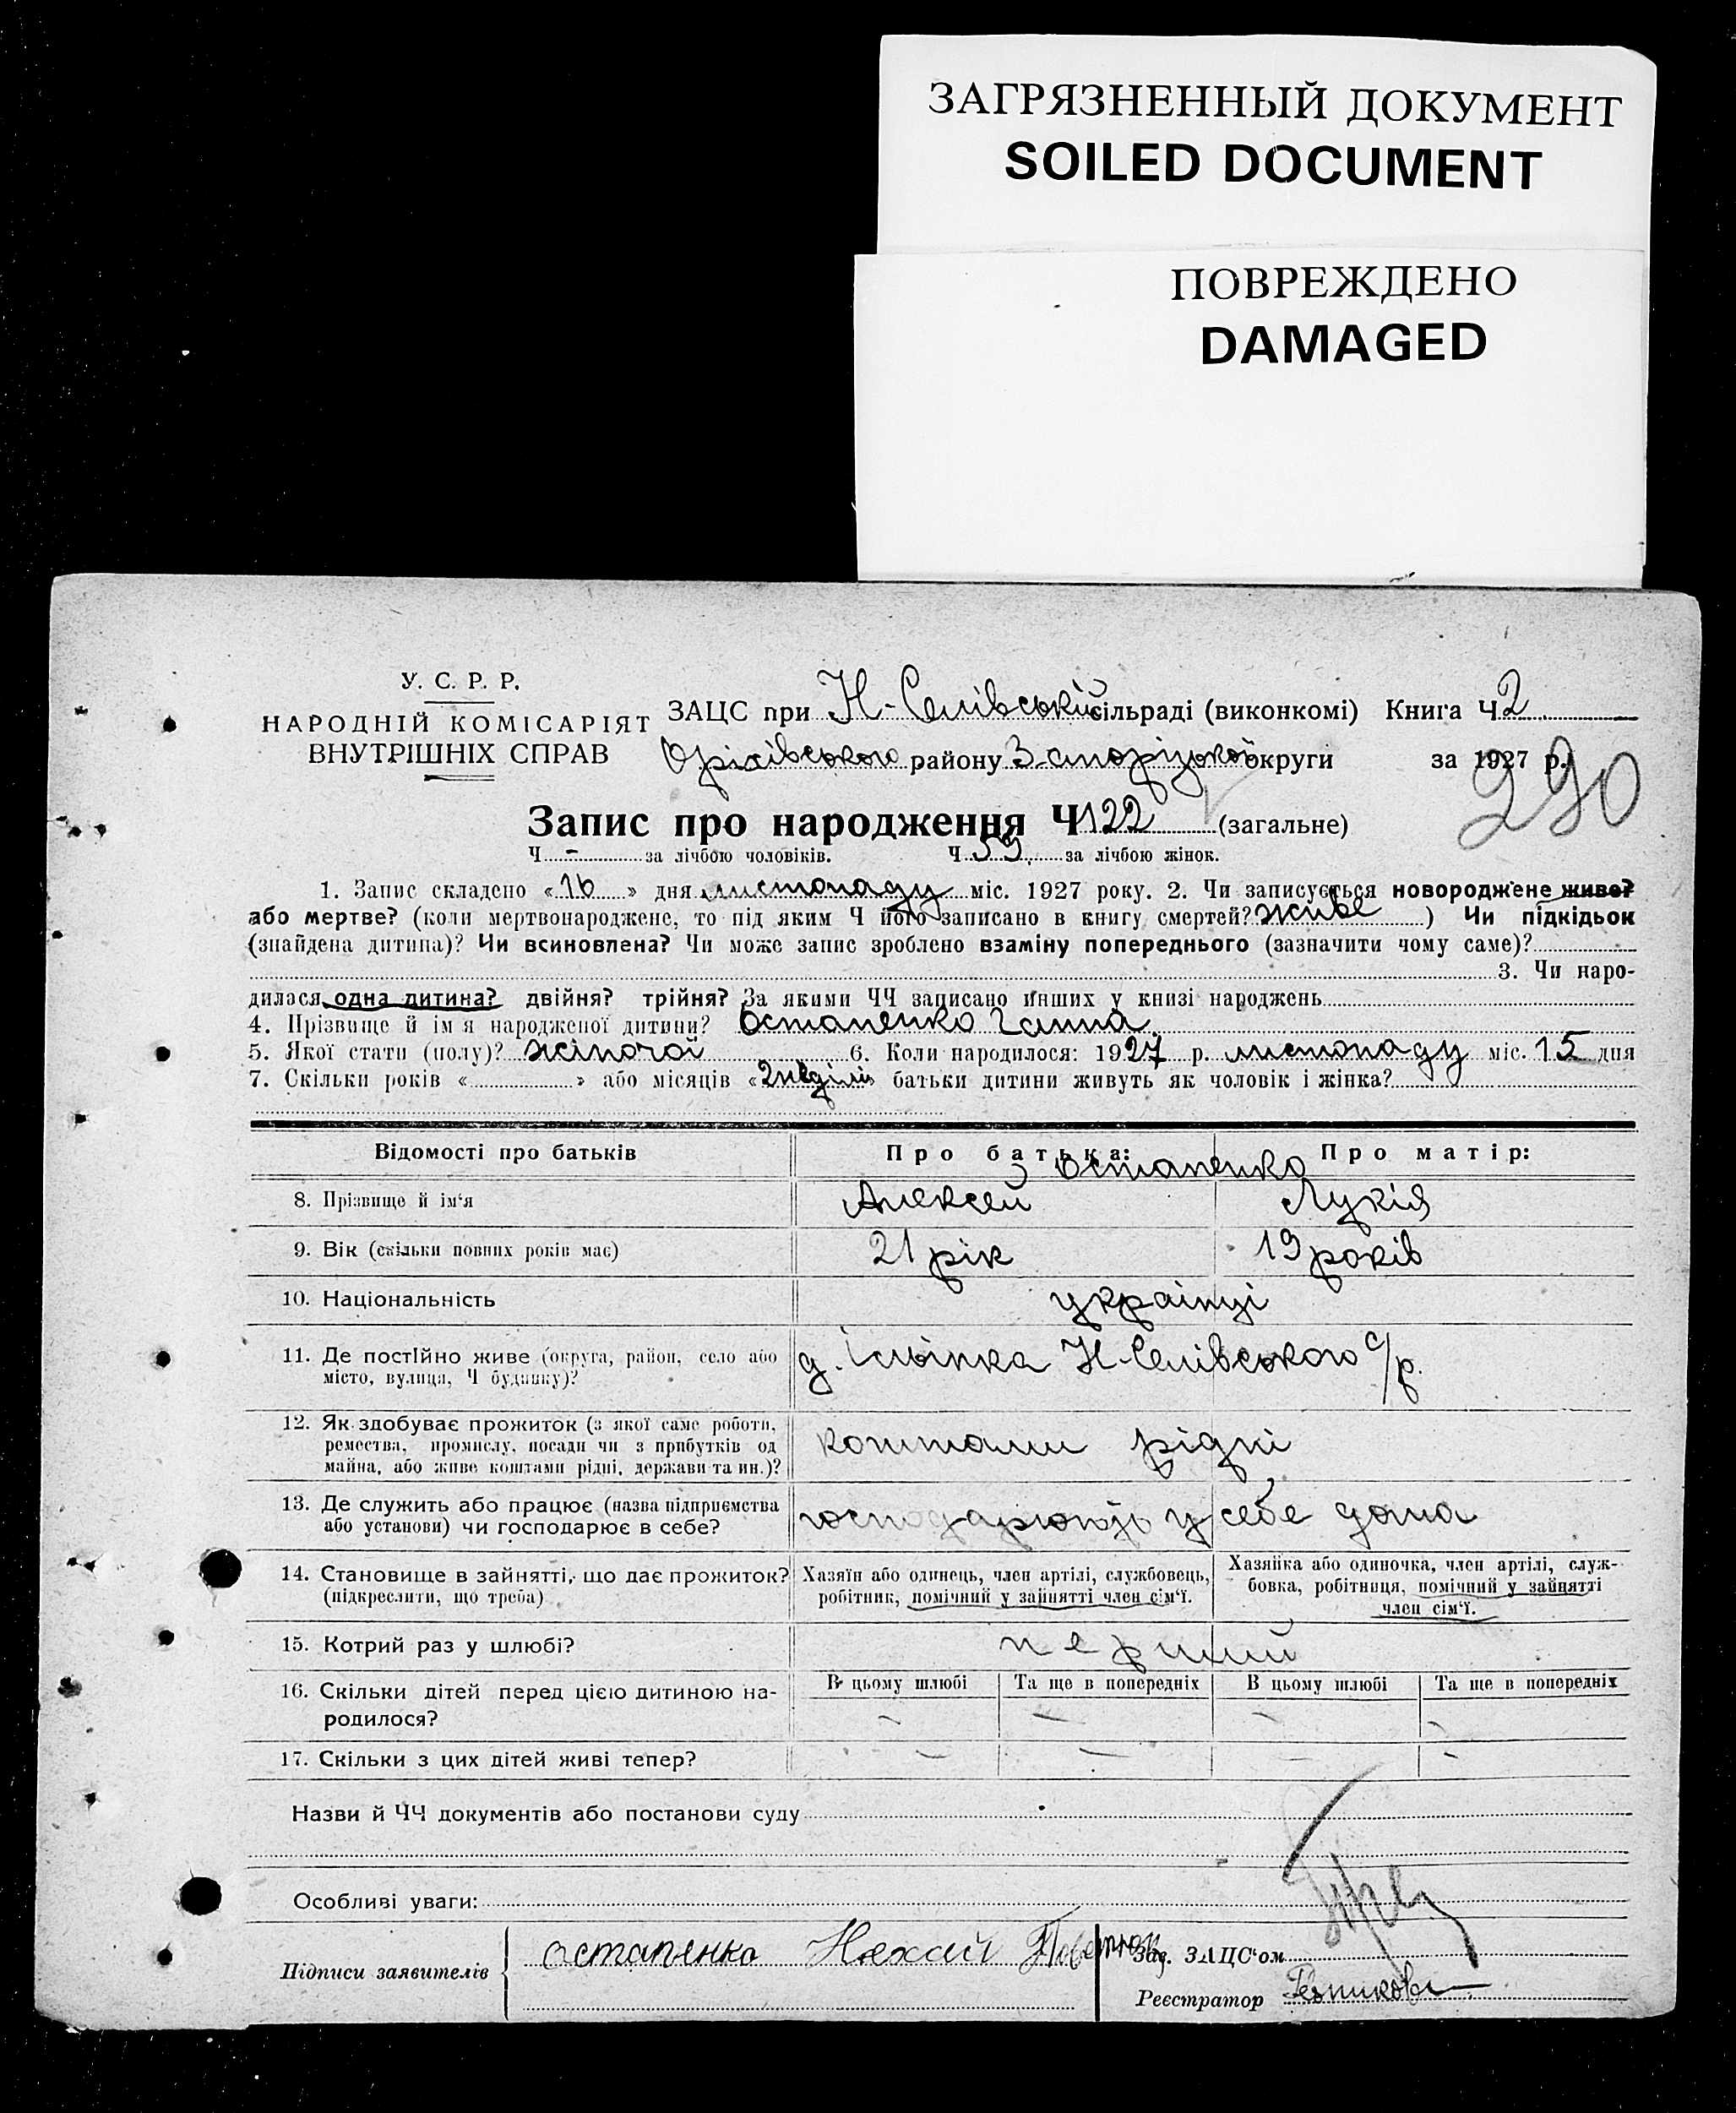 ЗАГРЯЗНЕННЫЙ ДОКУМЕНТ
SOILED DOCUMENT
ПОВРЕЖДЕНО
DAMAGED
У. С. Р. Р.
НАРОДНІЙ КОМІСАРІЯТ
ВНУТРІШНІХ СПРАВ
ЗАЦС при Н-Селівській сільраді (виконкомі) Книга Ч 2
Оріхівського району Запорізької округи за 1927 р.
290
Запис про народження Ч 122 (загальне)
Ч - за лічбою чоловіків. Ч 59 за лічбою жінок.
1. Запис складено «16» дня листопаду міс. 1927 року. 2. Чи записується новороджене живе?
або мертве? (коли мертвонароджене, то під яким Ч його записано в книгу смертей? живе ) Чи підкідьок
(знайдена дитина)? Чи всиновлена? Чи може запис зроблено взаміну попереднього (зазначити чому саме)?
3. Чи наро-
дилася одна дитина? двійня? трійня? За якими ЧЧ записано инших у книзі народжень
4. Прізвище й ім я народженої дитини? Остапенко Ганна.
5. Якої стати (полу)? жіночой 6. Коли народилося: 1927 р. листопаду міс. 15 дня
7. Скільки років « » або місяців «2 неділі» батьки дитини живуть як чоловік і жінка?
Відомості про батьків Про батька: Про матір:
Остапенко
8. Прізвище й ім‘я Алексей Лукія
9. Вік (скільки повних років має) 21 рік 19 років
10. Національність українці
11. Де постійно живе (округа, район, село або д. Н-Селівського с/р.
місто, вулиця, Ч будинку)?
12. Як здобуває прожиток (з якої саме роботи,
ремества, промислу, посади чи з прибутків од коштами рідні
майна, або живе коштами рідні, держави та ин.)?
13. Де служить або працює (назва підприємства господарюють у себе дома
або установи) чи господарює в себе?
14. Становище в зайнятті, що дає прожиток? Хазяїн або одинець, член артілі, службовець, Хазяйка або одиночка, член артілі, служ-
(підкреслити, що треба) робітник, помічний у зайнятті член сім‘ї. бовка, робітниця, помічний у зайнятті
член сім‘ї.
15. Котрий раз у шлюбі? перший
16. Скільки дітей перед цією дитиною на- В цьому шлюбі Та ще в попередніх В цьому шлюбі Та ще в попередніх
родилося? - - - -
17. Скільки з цих дітей живі тепер? - - - -
Назви й ЧЧ документів або постанови суду
Особливі уваги:
Підписи заявителів Остапенко Зав. ЗАЦС‘ом
Реєстратор